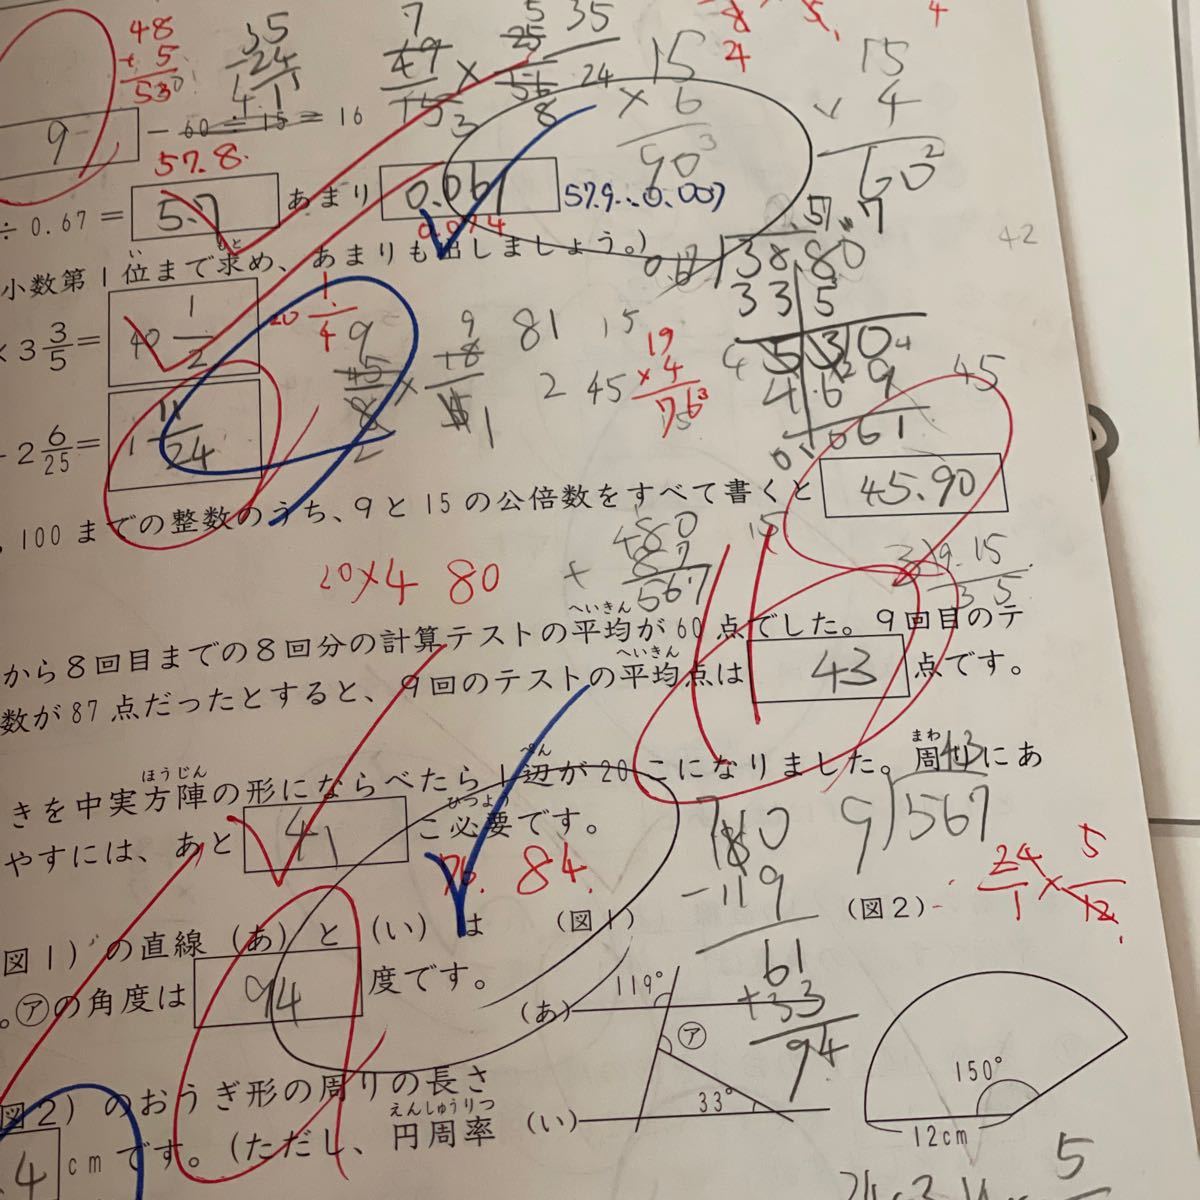 48
+ 5
530
35
24
7
49
×
5
25
56
8
35
24
15
× 6
90
15
4
60
4
9
－60÷15＝16
57.8.
÷0.67＝
5.7
あまり
0.061
57.9...0.007
0.074
小数第1位まで求め、あまりも出しましょう。)
いもと
0.67
38.80
335
530
469
0.061
42
×3 3/5＝
40 1/2
20 1/4
9
81
2
45
15
19
×4
76
－2 6/25＝
1 11/24
45
100までの整数のうち、9と15の公倍数をすべて書くと
45.90
20×4 80
480
+ 87
567
3)9.15
3 5
へいきん
から8回目までの8回分の計算テストの平均が60点でした。9回目のテ
へいきん
数が87点だったとすると、9回のテストの平均点は
43
点です。
ほうじん
へん
まわ
きを中実方陣の形にならべたら1辺が20こになりました。周りにあ
ひつよう
やすには、あと
41
こ必要です。
76.
84.
43
9)567
180
－119
61
+33
94
24/1×5/12
図1)の直線(あ)と(い)は
(図1)
(図2)
。㋐の角度は
94
度です。
119°
(あ)
㋐
33°
(い)
150°
12cm
図2)のおうぎ形の周りの長さ
えんしゅうりつ
4
cmです。(ただし、円周率
5